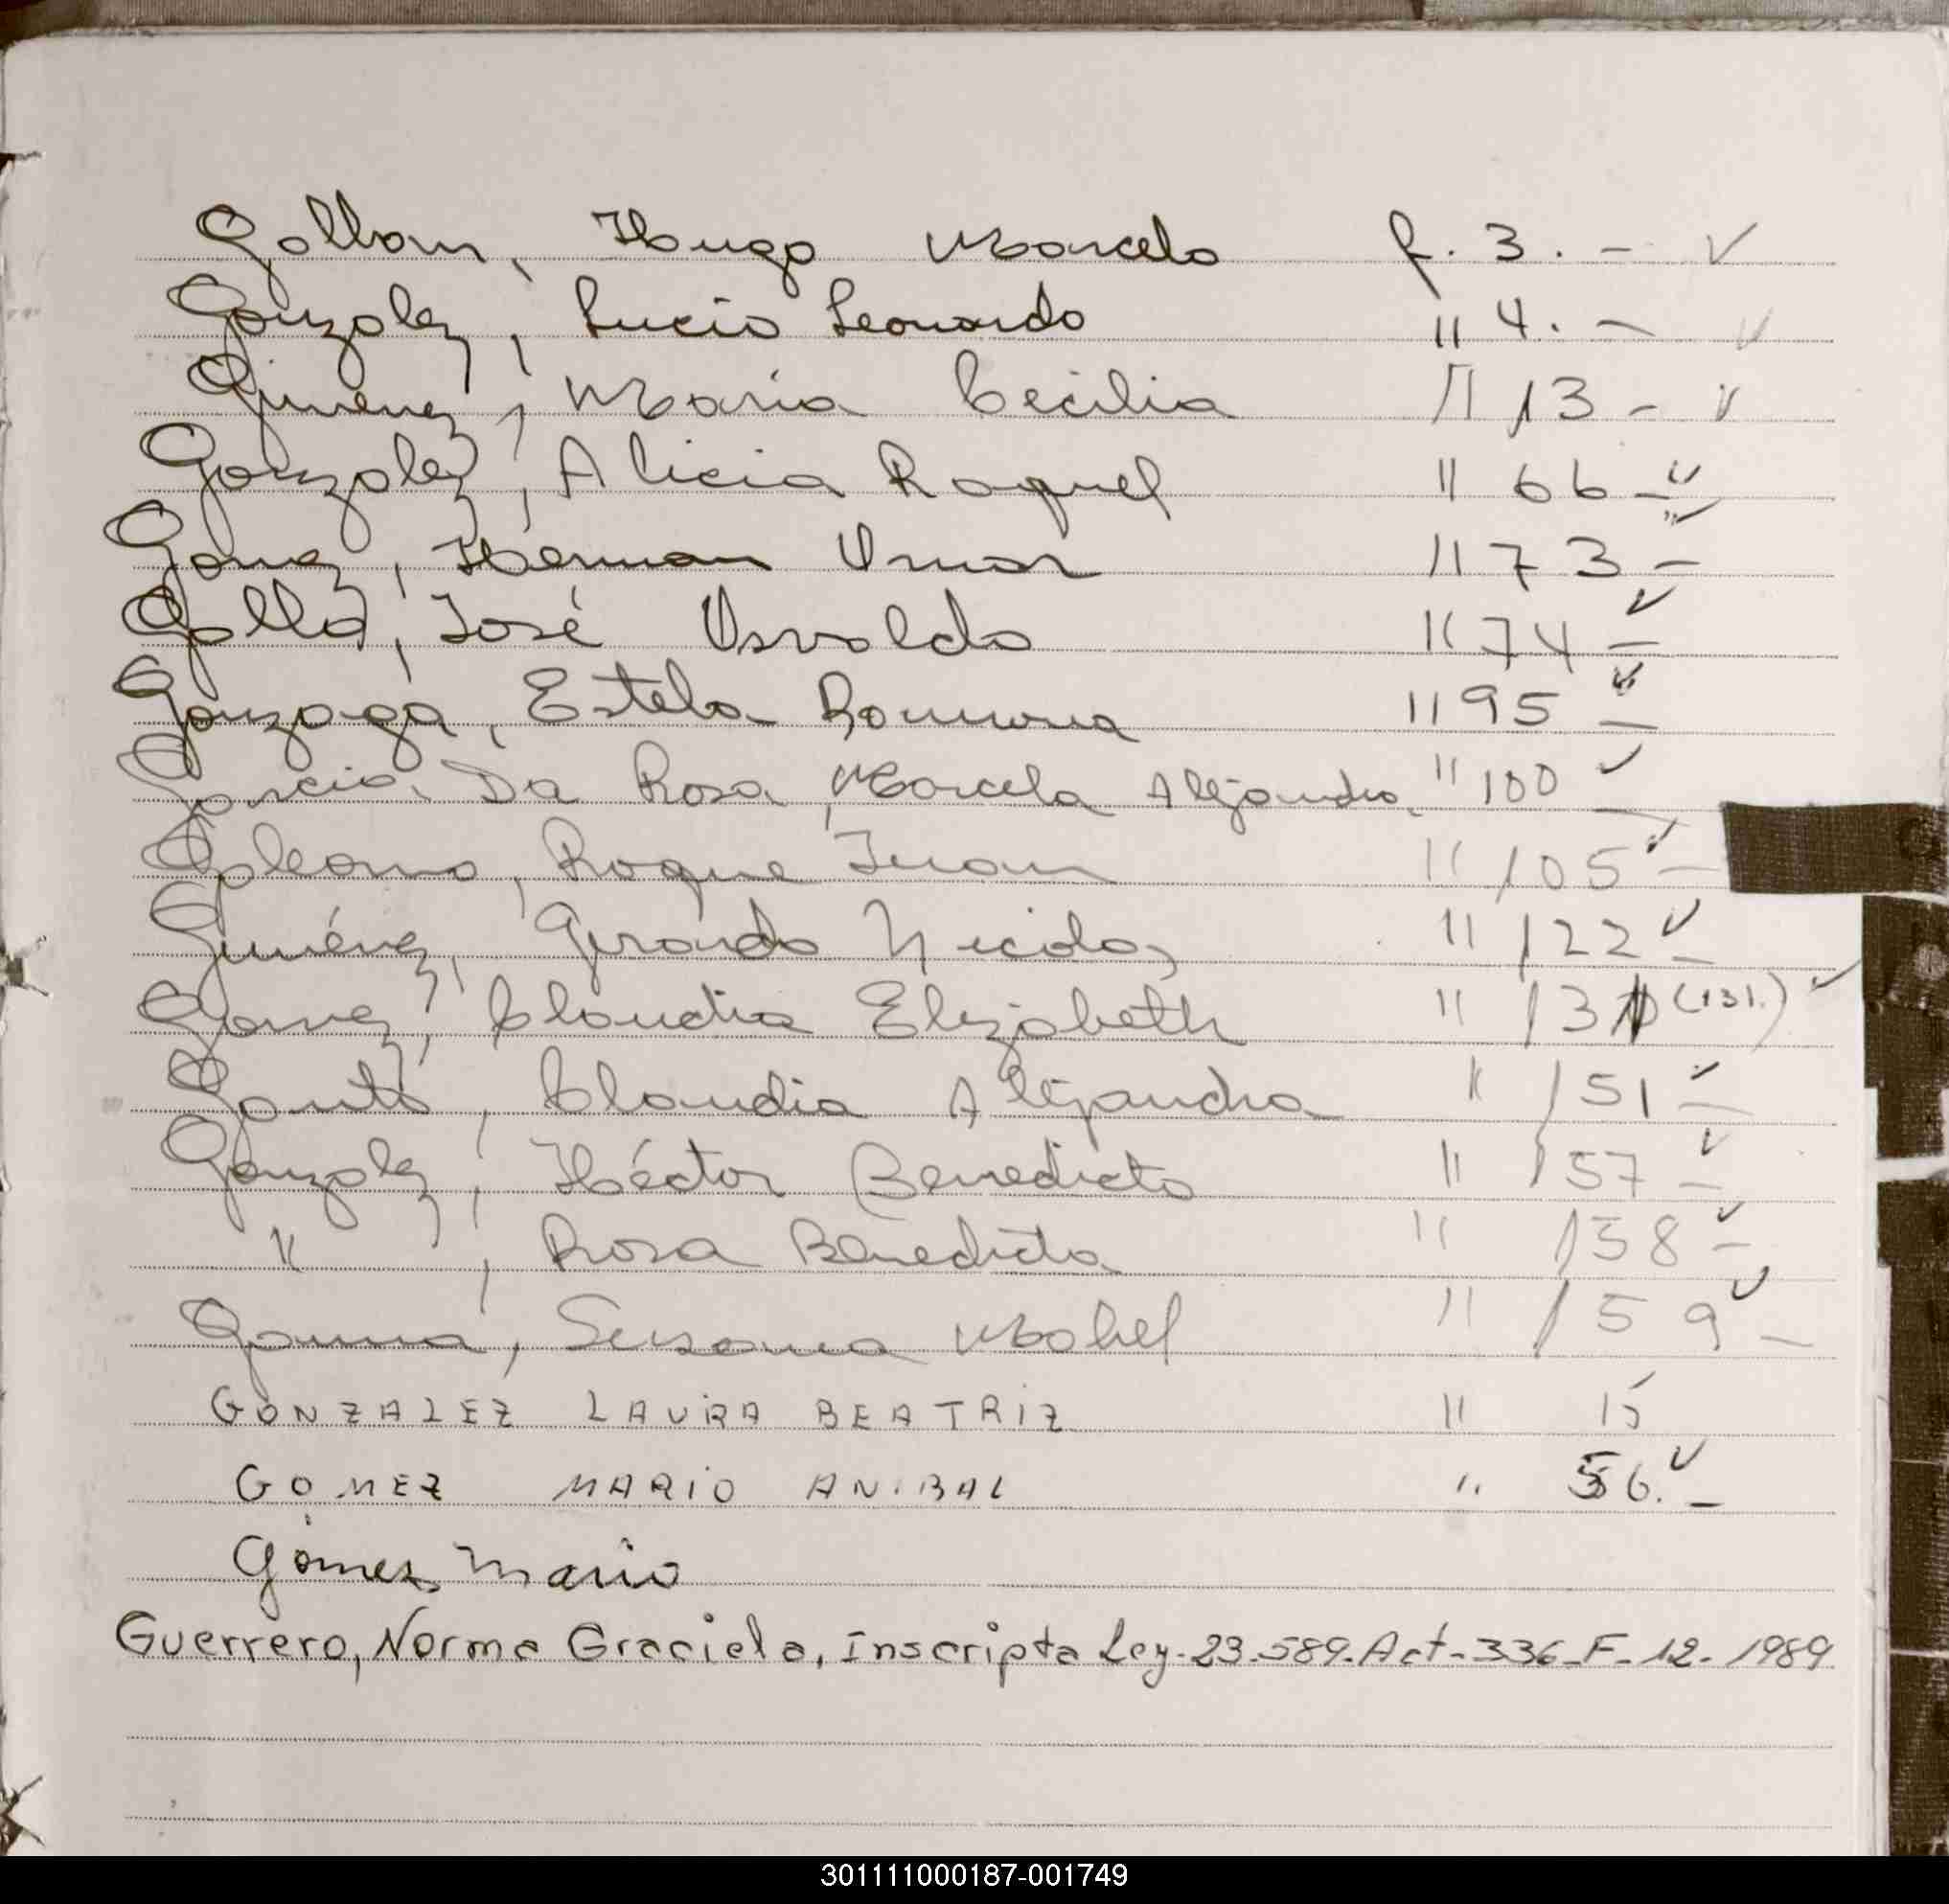 Galban, Hugo Marcelo f. 3. - ✓
Gonzalez, Lucio Leonardo " 4. - ✓
Gimenez, María Cecilia " 13 - ✓
Gonzalez, Alicia Raquel " 66 - ✓
Gomez, Hernan Omar " 73 - ✓
Galló, José Osvaldo " 74 - ✓
Gonzaga, Estela Romona " 95 - ✓
Garcia Da Rosa, Marcela Alejandra " 100 - ✓
Galeano, Roque Juan " 105 - ✓
Giménez, Gerardo Nicolas " 122 - ✓
Gomez, Claudia Elizabeth " 131 (131.) ✓
Claudia Alejandra " 151 - ✓
Gonzalez, Héctor Benedicto " 157 - ✓
" , Rosa Benedicta " 158 - ✓
Susana Mabel " 159 - ✓
GONZALEZ LAURA BEATRIZ " 15
GOMEZ MARIO ANIBAL " 56. - ✓
Gómez, Mario
Guerrero, Norma Graciela, Inscripta Ley-23.589. Act-336-F-12-1989
301111000187-001749